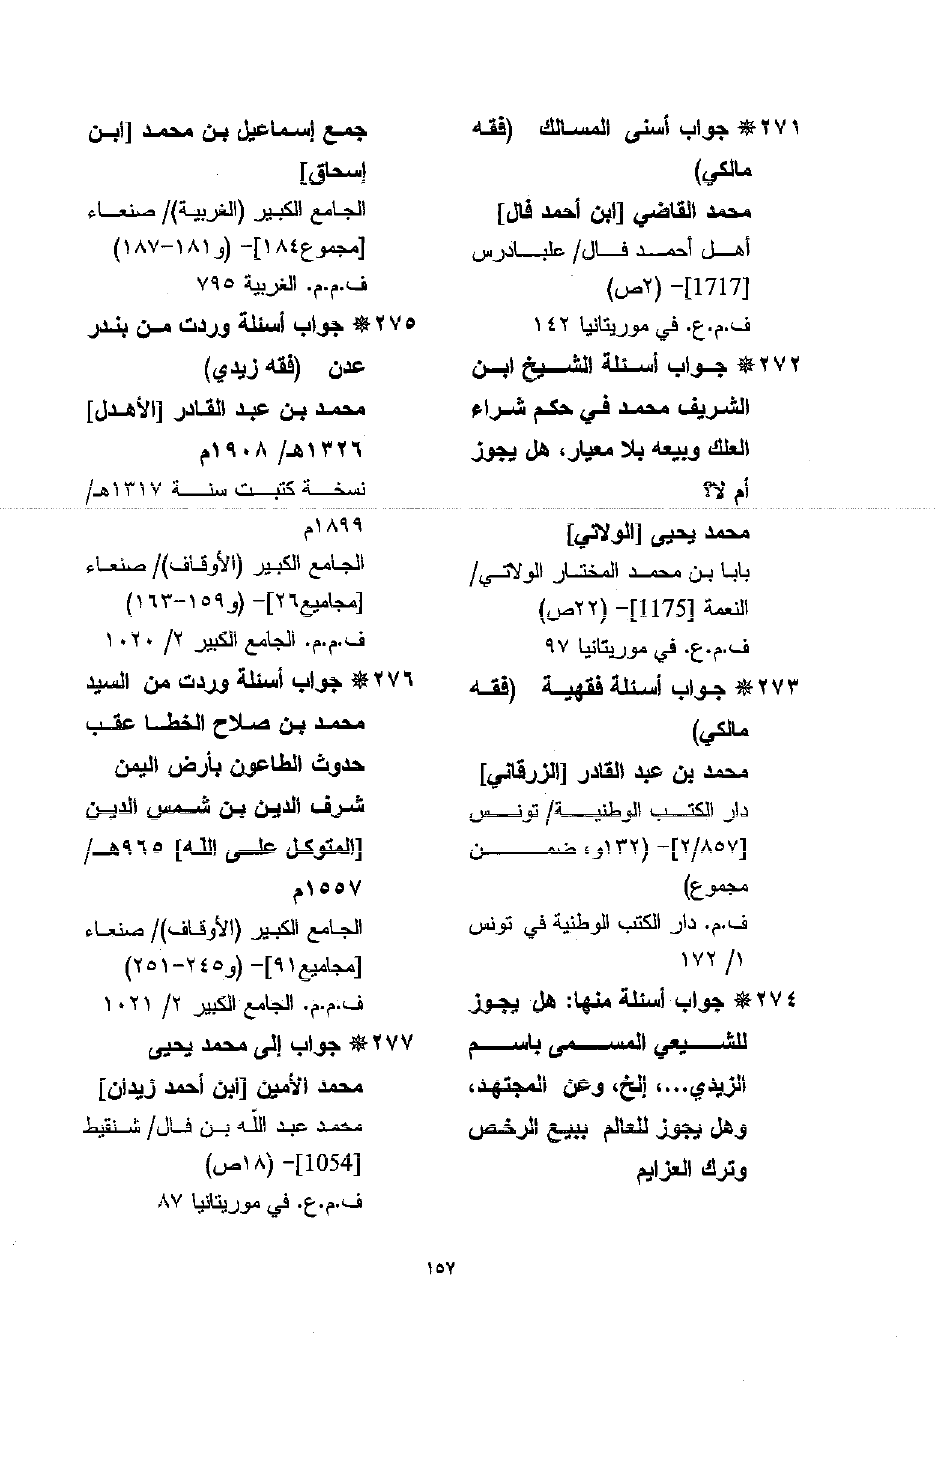 ٢٧١* جواب أسنى المسالك (فقه
مالكي)
محمد القاضي [ابن أحمد فال]
أهل أحمد فال/ علبادرس
[1717]- (٢ص)
ف.م.ع. في موريتانيا ١٤٢
٢٧٢* جواب أسئلة الشيخ ابن
الشريف محمد في حكم شراء
العلك وبيعه بلا معيار، هل يجوز
أم لا؟
محمد يحيى [الولاتي]
بابا بن محمد المختار الولاتي/
النعمة [1175]- (٢٢ص)
ف.م.ع. في موريتانيا ٩٧
٢٧٣* جواب أسئلة فقهية (فقه
مالكي)
محمد بن عبد القادر [الزرقاني]
دار الكتب الوطنية/ تونس
[٢/٨٥٧]- (١٣٢و، ضمن
مجموع)
ف.م. دار الكتب الوطنية في تونس
١/ ١٧٢
٢٧٤* جواب أسئلة منها: هل يجوز
للشيعي المسمى باسم
الزيدي...، إلخ، وعن المجتهد،
وهل يجوز للعالم ببيع الرخص
وترك العزايم
جمع إسماعيل بن محمد [ابن
إسحاق]
الجامع الكبير (الغربية)/ صنعاء
[مجموع١٨٤]- (و١٨١-١٨٧)
ف.م.م. الغربية ٧٩٥
٢٧٥* جواب أسئلة وردت من بندر
عدن (فقه زيدي)
محمد بن عبد القادر [الأهدل]
١٣٢٦هـ/ ١٩٠٨م
نسخة كتبت سنة ١٣١٧هـ/
١٨٩٩م
الجامع الكبير (الأوقاف)/ صنعاء
[مجاميع٢٦]- (و١٥٩-١٦٣)
ف.م.م. الجامع الكبير ٢/ ١٠٢٠
٢٧٦* جواب أسئلة وردت من السيد
محمد بن صلاح الخطا عقب
حدوث الطاعون بأرض اليمن
شرف الدين بن شمس الدين
[المتوكل على الله] ٩٦٥هـ/
١٥٥٧م
الجامع الكبير (الأوقاف)/ صنعاء
[مجاميع٩١]- (و٢٤٥-٢٥١)
ف.م.م. الجامع الكبير ٢/ ١٠٢١
٢٧٧* جواب إلى محمد يحيى
محمد الأمين [ابن أحمد زيدان]
محمد عبد الله بن فال/ شنقيط
[1054]- (١٨ص)
ف.م.ع. في موريتانيا ٨٧
١٥٧